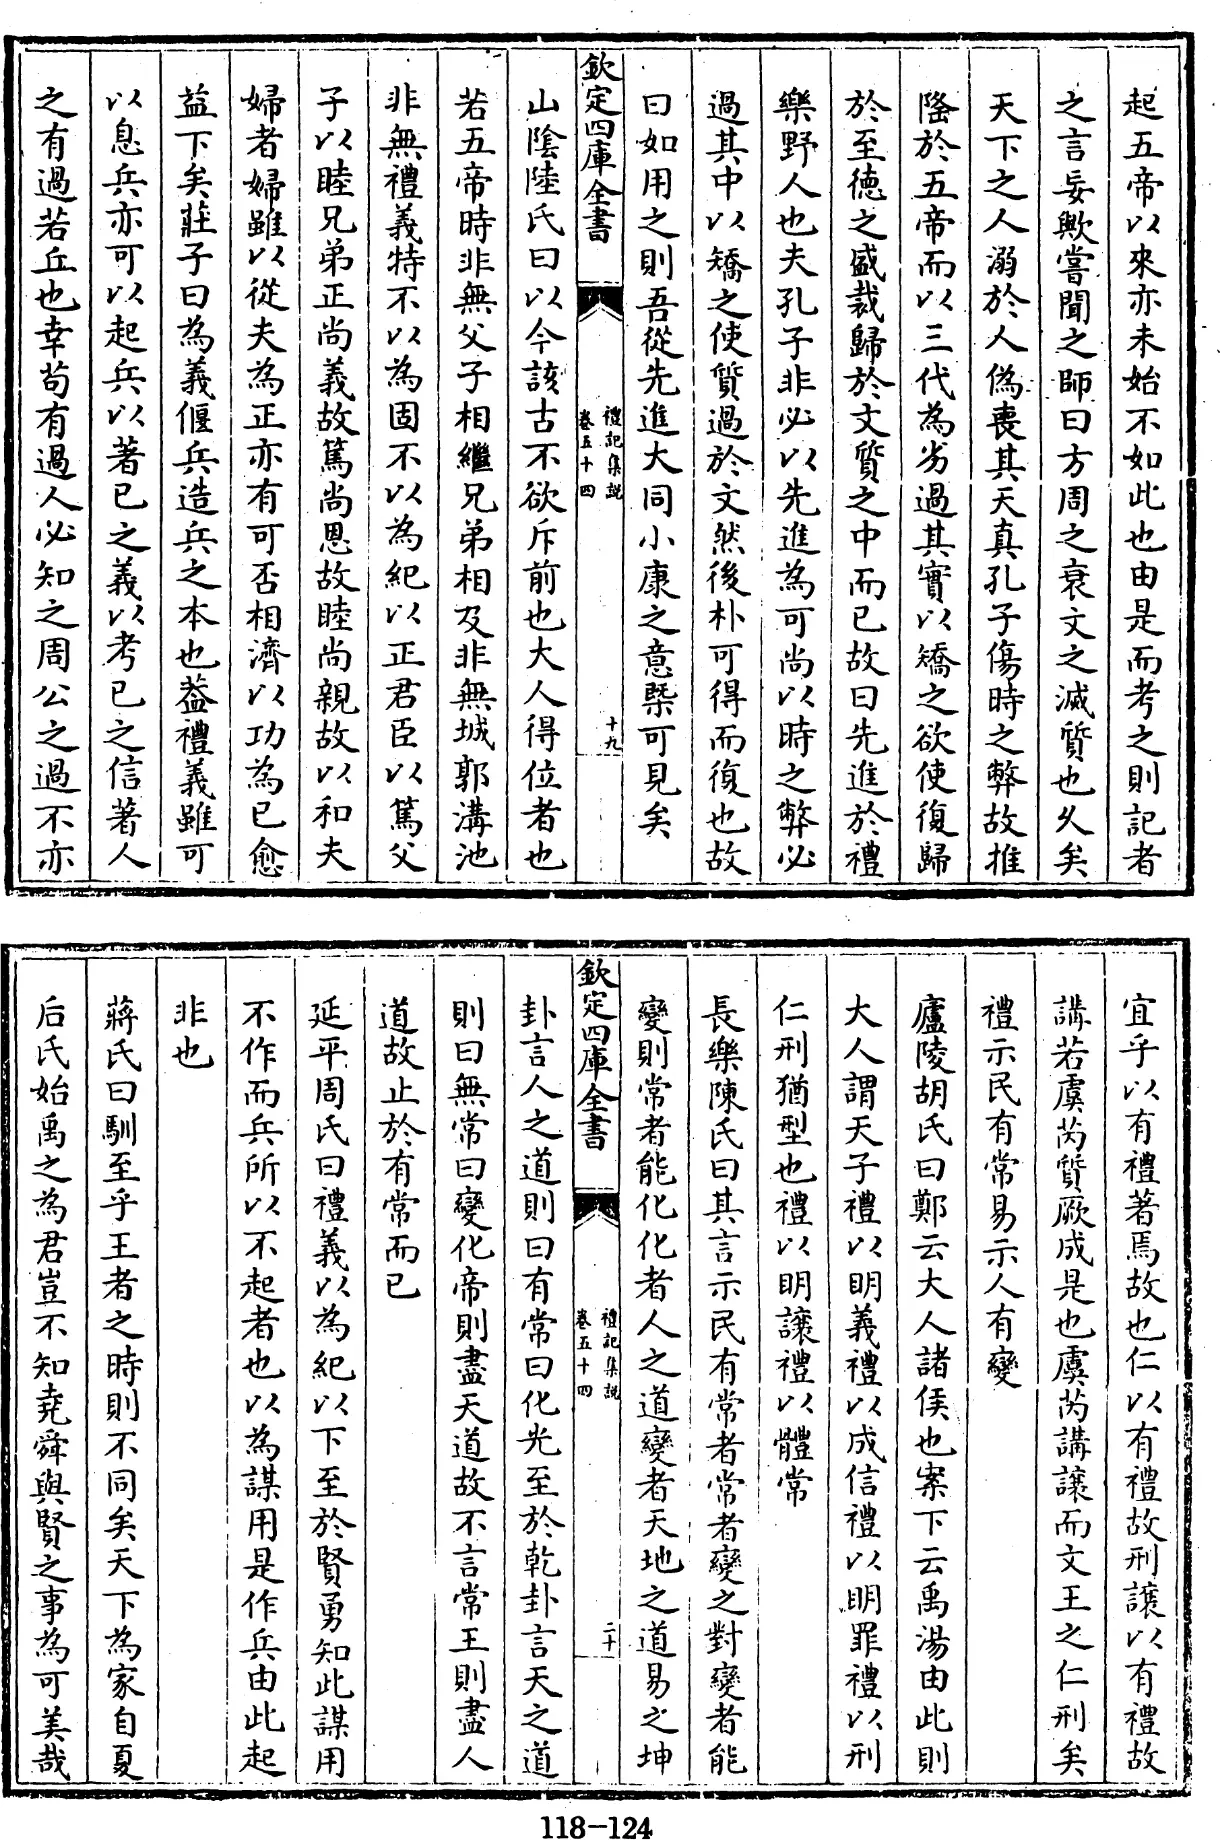 起五帝以來亦未始不如此也由是而考之則記者
之言妄歟嘗聞之師曰方周之衰文之滅質也久矣
天下之人溺於人偽喪其天真孔子傷時之弊故推
隆於五帝而以三代為劣過其實以矯之欲使復歸
於至德之盛裁歸於文質之中而已故曰先進於禮
樂野人也夫孔子非必以先進為可尚以時之弊必
過其中以矯之使質過於文然後朴可得而復也故
曰如用之則吾從先進大同小康之意槩可見矣
欽定四庫全書
禮記集說
卷五十四
十九
山陰陸氏曰以今該古不欲斥前也大人得位者也
若五帝時非無父子相繼兄弟相及非無城郭溝池
非無禮義特不以為固不以為紀以正君臣以篤父
子以睦兄弟正尚義故篤尚恩故睦尚親故以和夫
婦者婦雖以從夫為正亦有可否相濟以功為已愈
益下矣莊子曰為義偃兵造兵之本也葢禮義雖可
以息兵亦可以起兵以著已之義以考已之信著人
之有過若丘也幸苟有過人必知之周公之過不亦
宜乎以有禮著焉故也仁以有禮故刑讓以有禮故
講若虞芮質厥成是也虞芮講讓而文王之仁刑矣
禮示民有常易示人有變
廬陵胡氏曰鄭云大人諸侯也案下云禹湯由此則
大人謂天子禮以明義禮以成信禮以明罪禮以刑
仁刑猶型也禮以明讓禮以體常
長樂陳氏曰其言示民有常者常者變之對變者能
變則常者能化化者人之道變者天地之道易之坤
欽定四庫全書
禮記集說
卷五十四
二十
卦言人之道則曰有常曰化光至於乾卦言天之道
則曰無常曰變化帝則盡天道故不言常王則盡人
道故止於有常而已
延平周氏曰禮義以為紀以下至於賢勇知此謀用
不作而兵所以不起者也以為謀用是作兵由此起
非也
蔣氏曰馴至乎王者之時則不同矣天下為家自夏
后氏始禹之為君豈不知堯舜與賢之事為可美哉
118-124